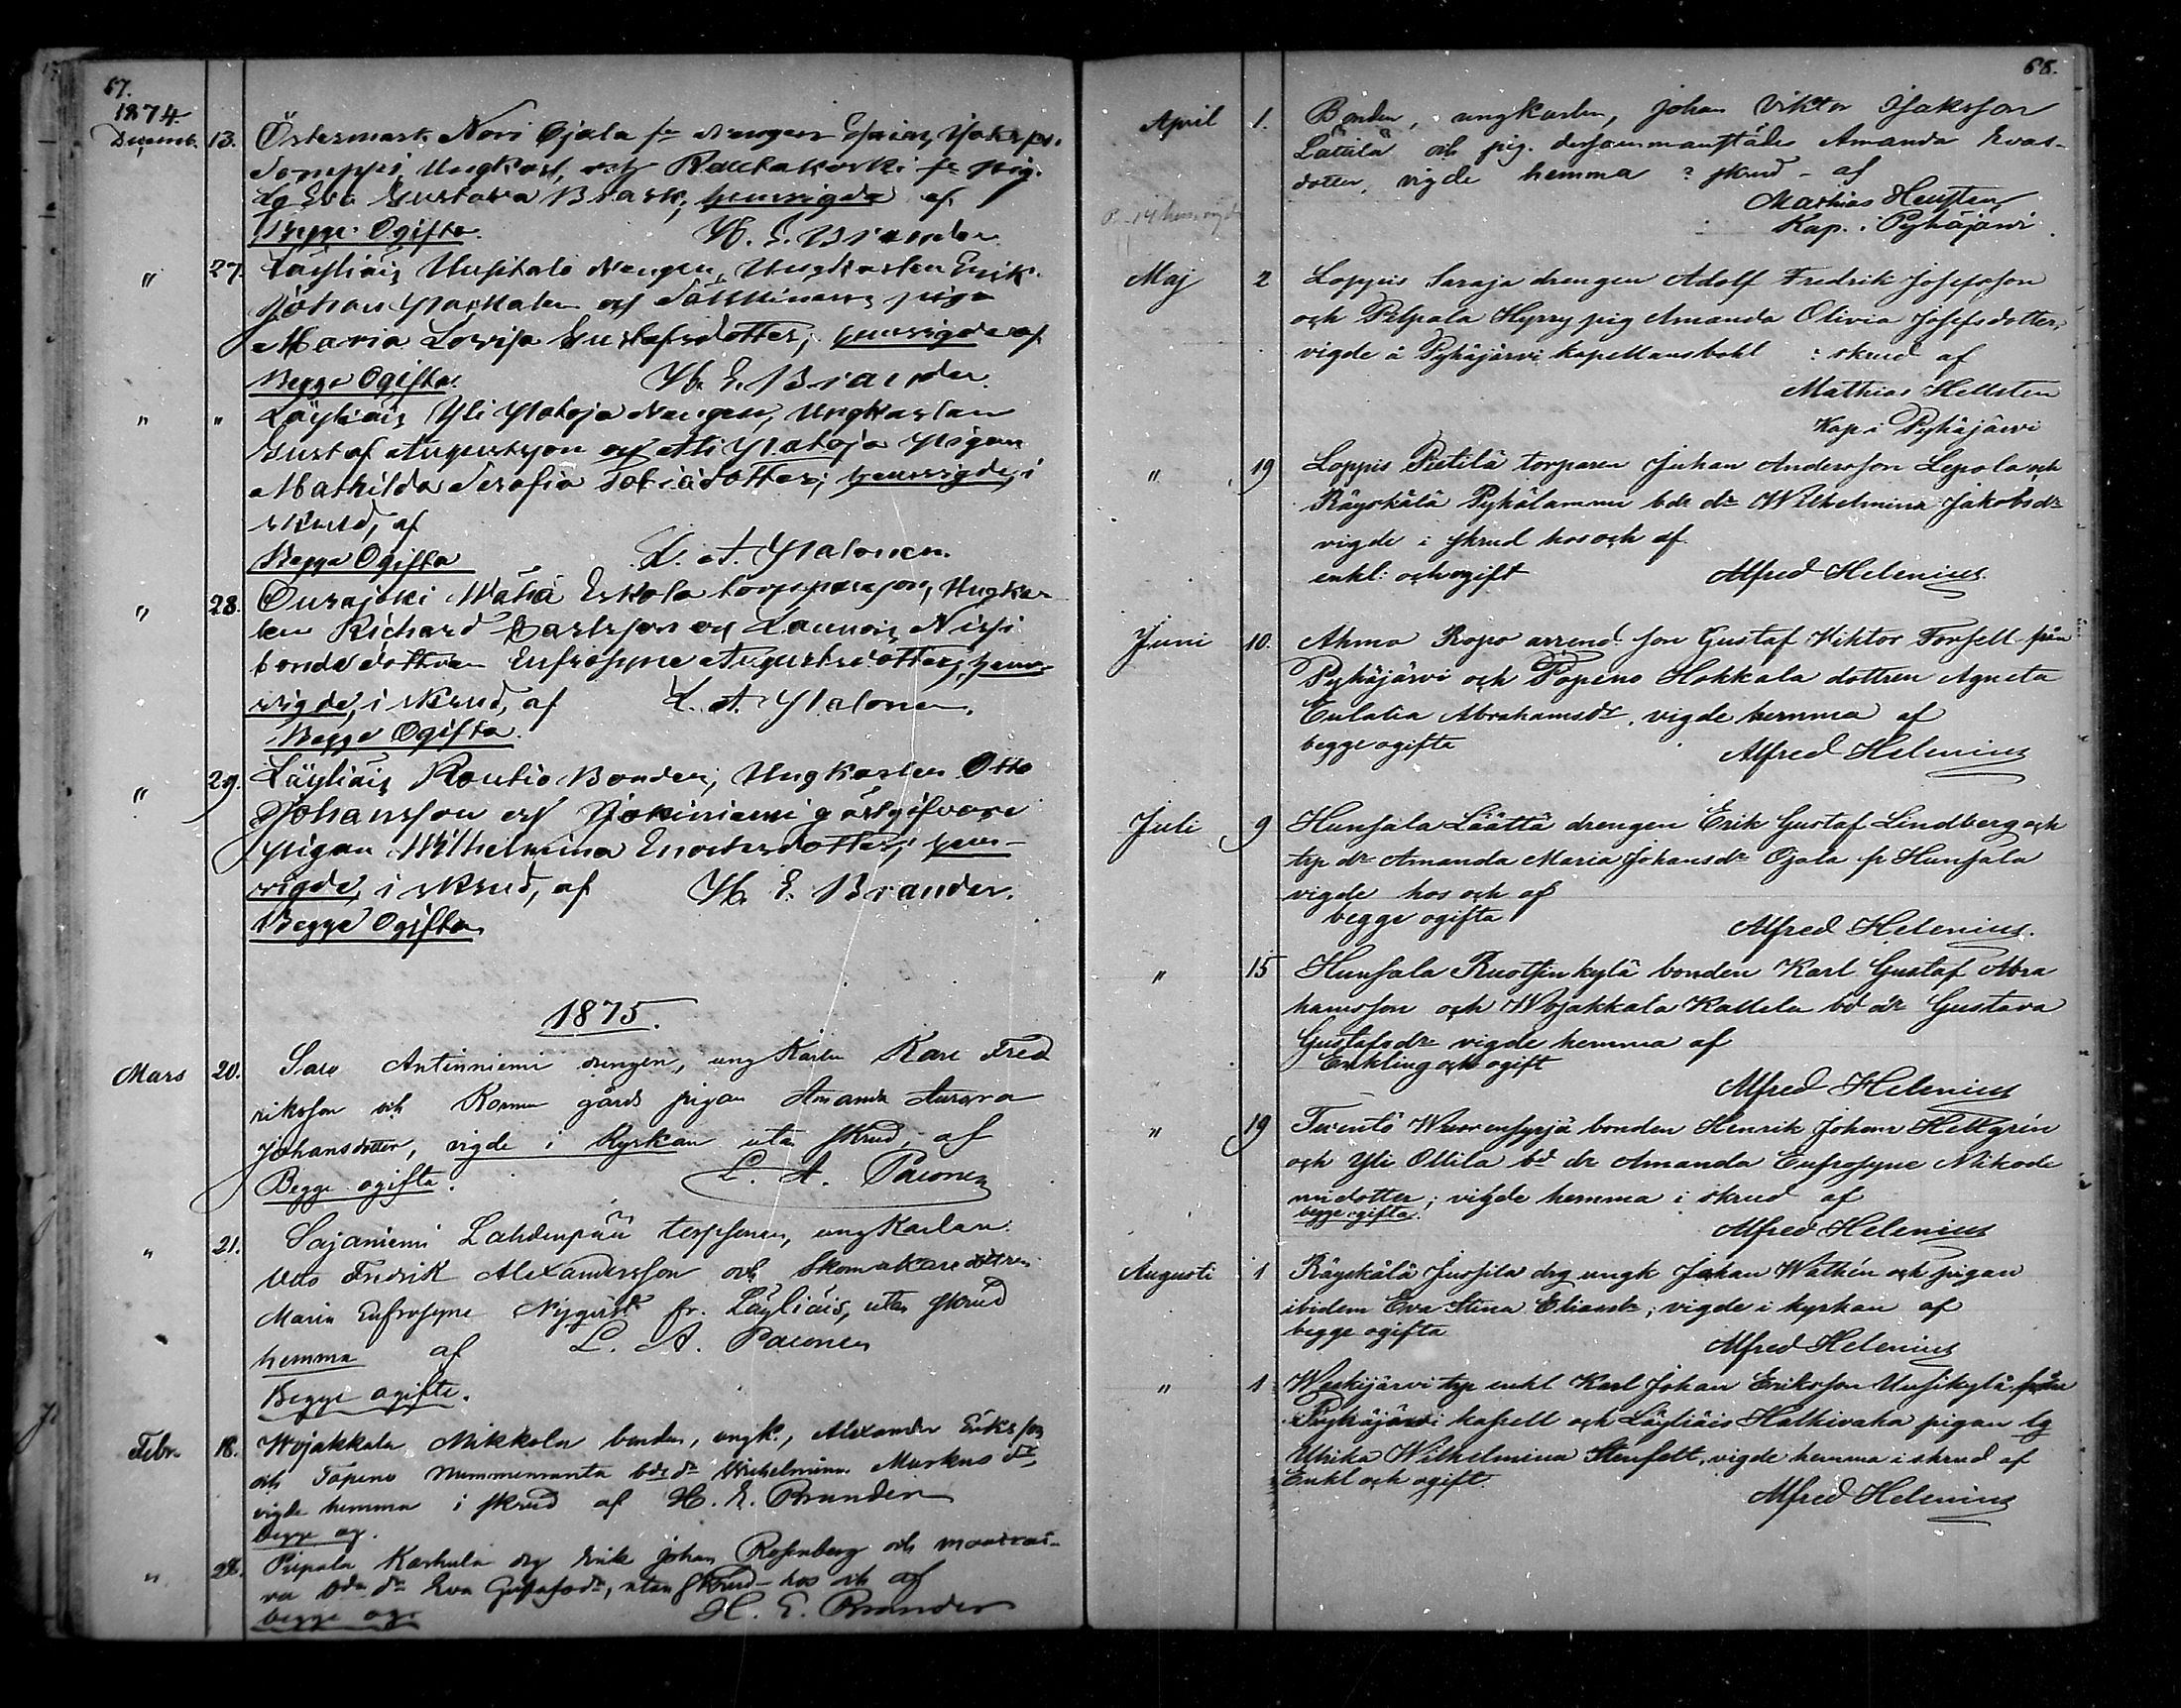 67.
1874
Decemb. 13. Östermark, Novi Ojala
Ungkarl, och Rautakoski
Eva Gustava Brask, hemvigde af
Begge Ogifta. H. E. Brander.
" 27. Läyliäis Uusitalo drengen, Ungkarlen Erik
Johan och Sälllinoins piga
Maria Lovisa Gustafsdotter, hemvigde af
Begge Ogifta. H. E. Brander.
" " Läyliäis Yli drengen, Ungkarlen
Gustaf Augustsson och Ali pigan
Mathilda Serafia Tobiädotter; hemvigde, i
skrud, af
Begge Ogifta L. A. Palonen.
" 28. Ourajoki Wähä Eskola torpareson, Ungkar-
len Richard Karlsson och Launois Nissi
bondedottren Eufrosyne Augustsdotter, hem-
vigde, i skrud, af L. A. Palonen.
Begge Ogifta.
" 29. Läyliäis Routio Bonden, Ungkarlen Otto
Johansson och Jokiniemi gästgifvare
pigan Wilhelmina Enoksdotter, hem-
vigde, i skrud, af H. E. Brander.
Begge Ogifta
1875.
Mars 20. Salo Antinniemi drengen, ungkarlen Karl Fred
riksson och Kormu gårds pigan Amanda Aurora
Johansdotter, vigde i Kyrkan utan skrud, af
Begge ogifta. L. A. Palonen
" 21. Sajaniemi Lahdenpää torpsonen, ungkarlen
Otto Fredrik Alexandersson och Skomakaredottren
Maria Eufrosyne Nyqvist fr. Läyliäis, utan skrud
hemma af L. A. Palonen
Begge ogifta.
Febr. 18. Wojakkala Mikkola bonden, ungk., Alexander Eriksson
och Topeno Nummenranta bde dr Wilhelmina Markus dr,
vigde hemma i skrud af H. E. Brander
begge og.
" 28. Pilpala Karhula drg Erik Johan Rosenberg och
bde dr Eva Gustafsdr, utan skrud - hos och af
begge og. H. E. Brander
68.
April 1. Bonden, ungkarlen, Johan Viktor Isaksson
Lättilä och pig. dersammanstädes Amanda Evas-
dotter, vigde hemma i skrud - af
Mathias Hellsten
Kap. i Pyhäjärvi.
Maj 2 Loppis Saraja drengen Adolf Fredrik Josefsson
och Pilpala Hyrry pig Amanda Olivia Josefsdotter,
vigde å Pyhäjärvi kapellansbohl i skrud af
Mathias Hellsten
Kap i Pyhäjärvi
" 19 Loppis Pietilä torparen Juhan Andersson Lepola och
Räyskälä Pyhälammi bde dr Wilhelmina Jakobsdr
vigde i skrud hos och af
enkl: och ogift Alfred Helenius.
Juni 10. Ahmo Ropo arrend. son Gustaf Viktor Forsell från
Pyhäjärvi och Topeno Hokkala dottren Agneta
Eulalia Abrahamsdr, vigde hemma af
begge ogifta Alfred Helenius
Juli 9 Hunsala Läättä drengen Erik Gustaf Lindberg och
trp dr Amanda Maria Johansdr Ojala fr Hunsala
vigde hos och af
begge ogifta Alfred Helenius.
" 15 Hunsala Ruotsinkylä bonden Karl Gustaf Abra
hamsson och Wojakkala Kallela bd dr Gustava
Gustafsdr vigde hemma af
Enkling och ogift
Alfred Helenius
" 19 Teuentö bonden Henrik Johan Hellgrén
och Yli Ollila bd dr Amanda Eufrosyne Nikode
midotter; vigde hemma i skrud af
begge ogifta. Alfred Helenius
Augusti 1 Räyskälä Jussila drg ungk Johan Wathén och pigan
ibidem Eva Stina Eliasdr, vigde i kyrkan af
begge ogifta Alfred Helenius
" 1 Weskijärvi trp enkl Karl Johan Eriksson Uusikylä från
Pyhäjärvi kapell och Läyliäis Hatkivaha pigan lg
Ulrika Wilhelmina Stenfelt, vigde hemma i skrud af
Enkl och ogift.
Alfred Helenius